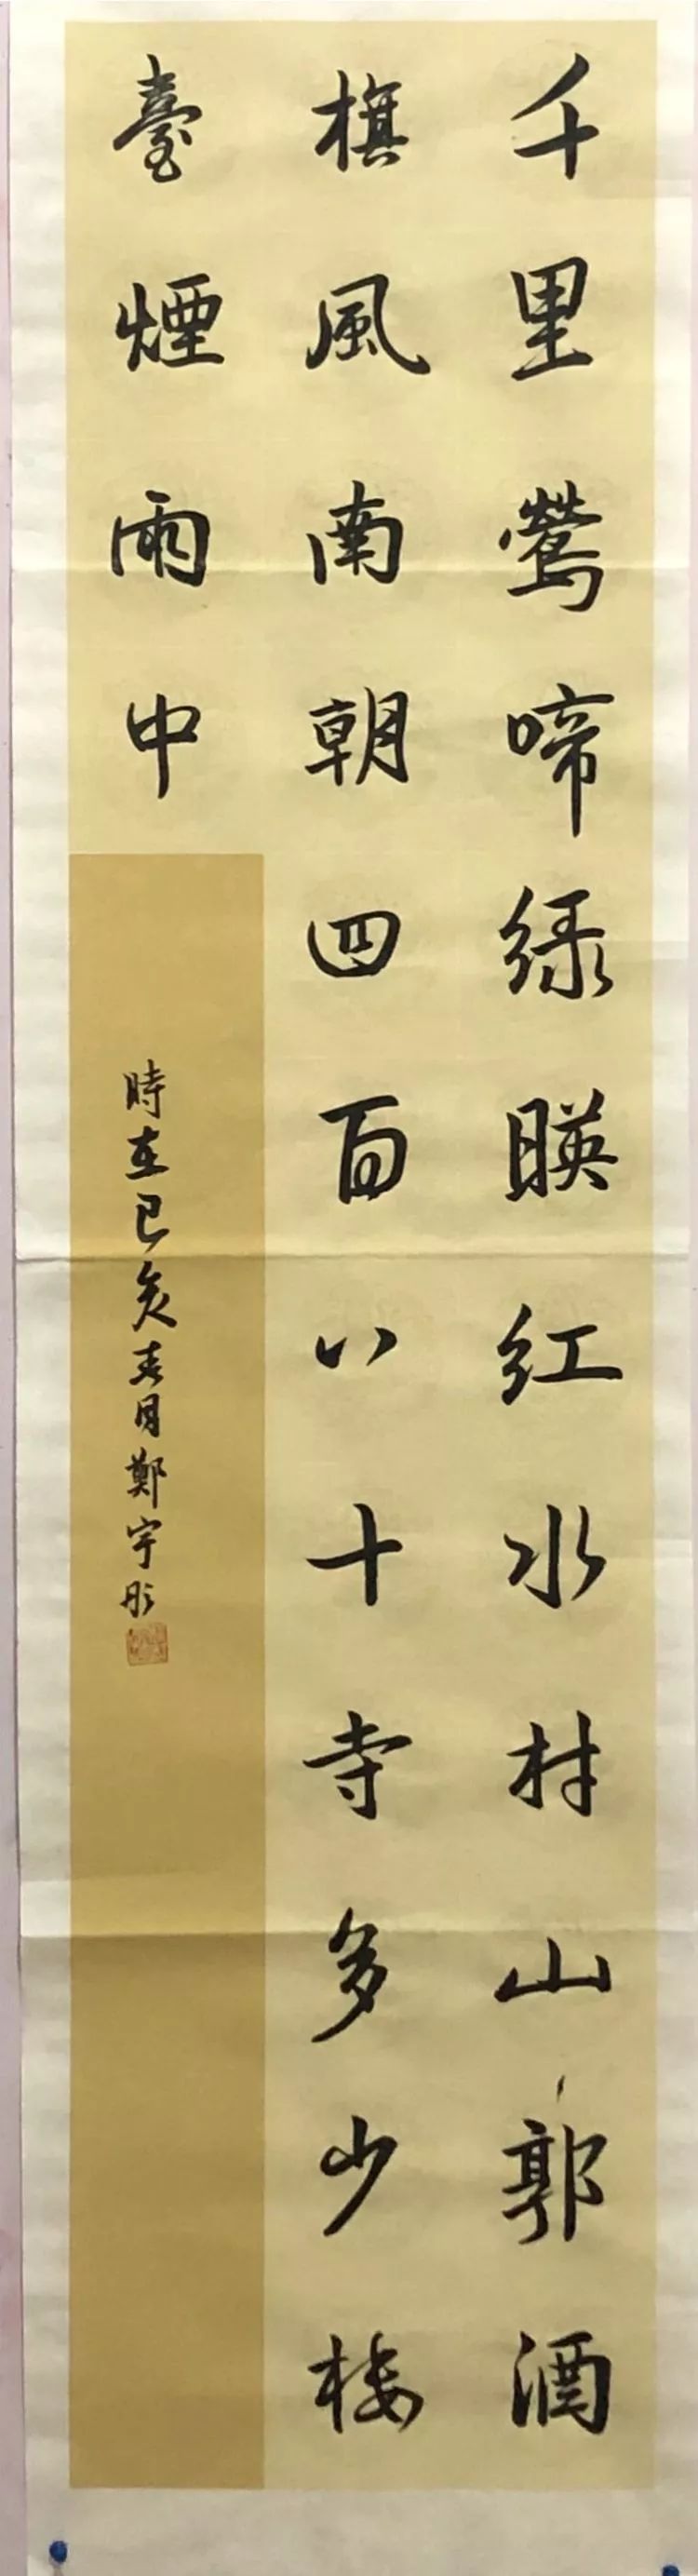 千里鶯啼緑暎红水村山郭酒
旗風南朝四百八十寺多少楼
臺煙雨中
時在己亥春月鄭宇彤